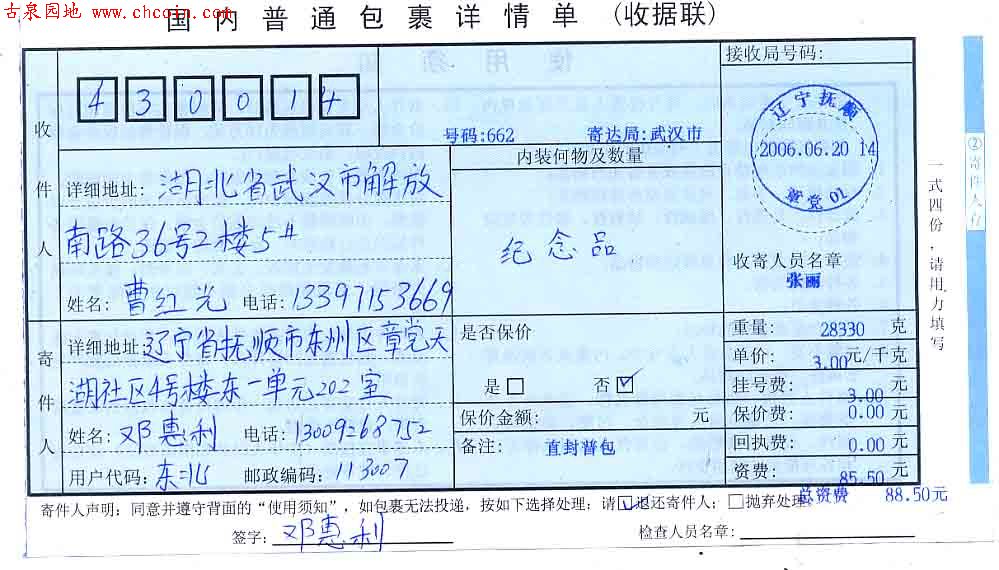 古泉园地
www.chcoin.com
国内普通包裹详情单 (收据联)
接收局号码:
430014
号码:662 寄达局:武汉市
收件人
详细地址: 湖北省武汉市解放
南路36号2楼5#
姓名: 曹红光 电话: 13397153669
内装何物及数量
纪念品
辽宁抚顺
2006.06.20 14
章党 01
收寄人员名章
张丽
寄件人
详细地址: 辽宁省抚顺市东州区章党天
湖社区4号楼东一单元202室
姓名: 邓惠利 电话: 13009268752
用户代码: 东北 邮政编码: 113007
是否保价
是□ 否☑
保价金额: 元
备注: 直封普包
重量: 28330 克
单价: 3.00元/千克
挂号费: 3.00 元
保价费: 0.00 元
回执费: 0.00 元
资费: 85.50 元
总资费 88.50元
寄件人声明:同意并遵守背面的“使用须知”,如包裹无法投递,按如下选择处理:请☑退还寄件人;□抛弃处理。
签字: 邓惠利
检查人员名章:
②寄件人存
一式四份,请用力填写
使用须知